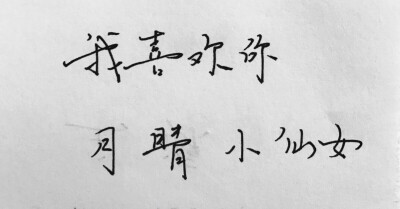 我喜欢你
月睛小仙女